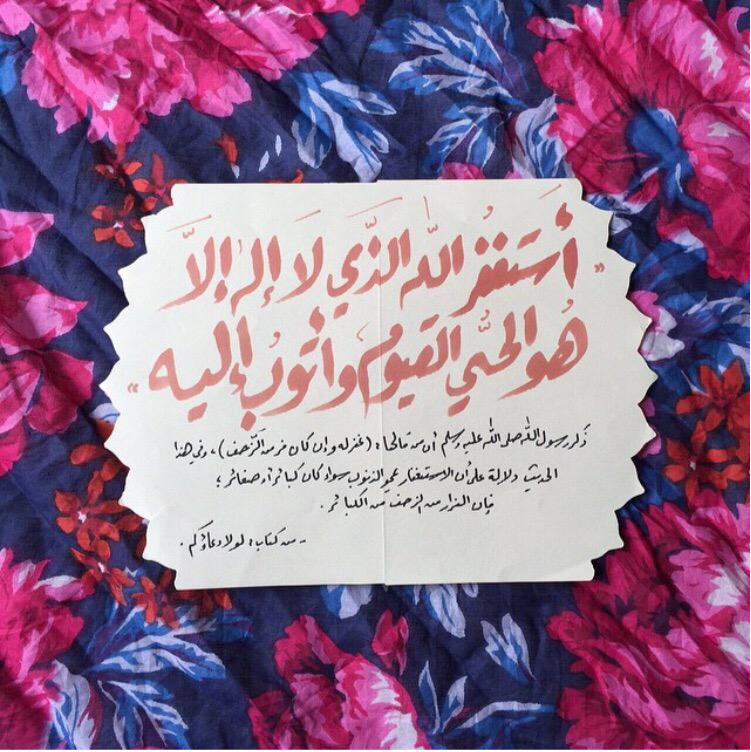 « أَستغفرُ اللّه الَّذي لاَ إله إلاَّ
هُو الحيُّ القيوم وأتوبُ إليه »
ذكر رسول اللّٰه صلى اللّٰه عليه وسلم أن من قالها : ( غفر له وإن كان فر من الزحف ) ، وفي هذا
الحديث دلالة على أن الاستغفار يمحو الذنوب سواء كان كبائر أو صغائر ؛
فإن الفرار من الزحف من الكبائر .
- من كتاب : لولا دعاؤكم .